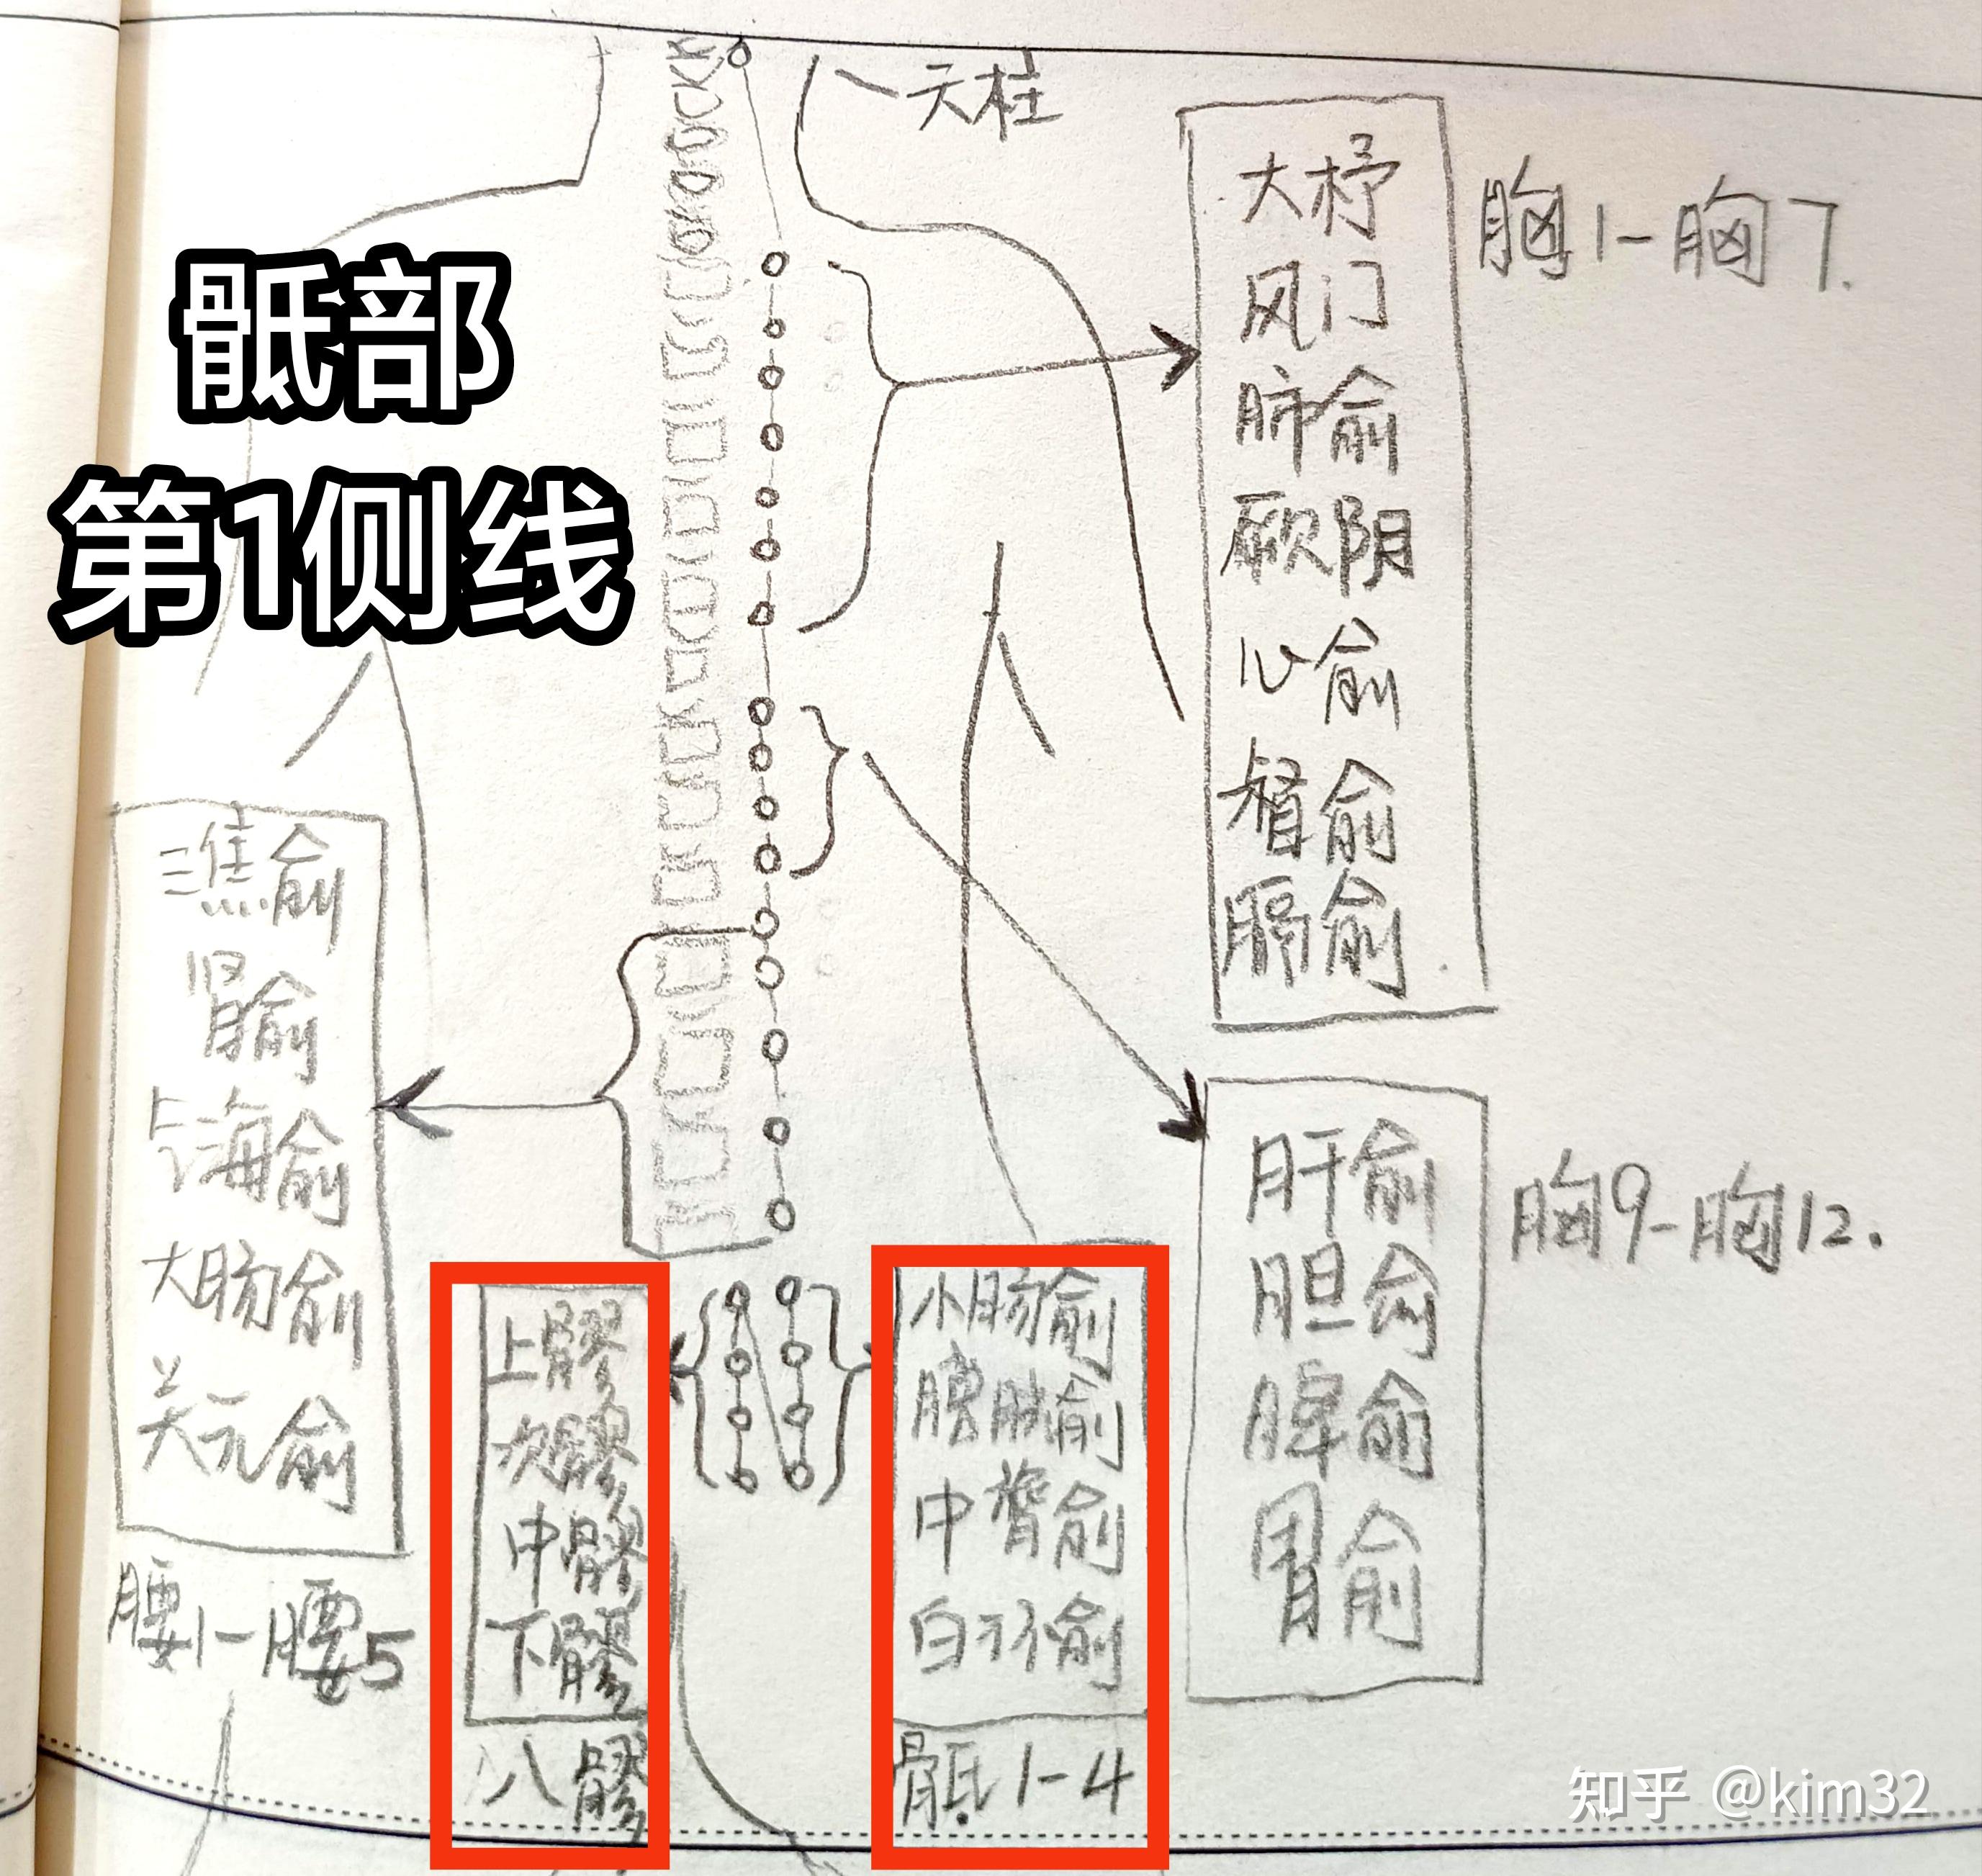 天柱
大杼
风门
肺俞
厥阴
心俞
督俞
膈俞
胸1-胸7.
骶部
第1侧线
三焦俞
肾俞
气海俞
大肠俞
关元俞
腰1-腰5
肝俞
胆俞
脾俞
胃俞
胸9-胸12.
上髎
次髎
中髎
下髎
八髎
小肠俞
膀胱俞
中膂俞
白环俞
骶1-4
知乎 @kim32